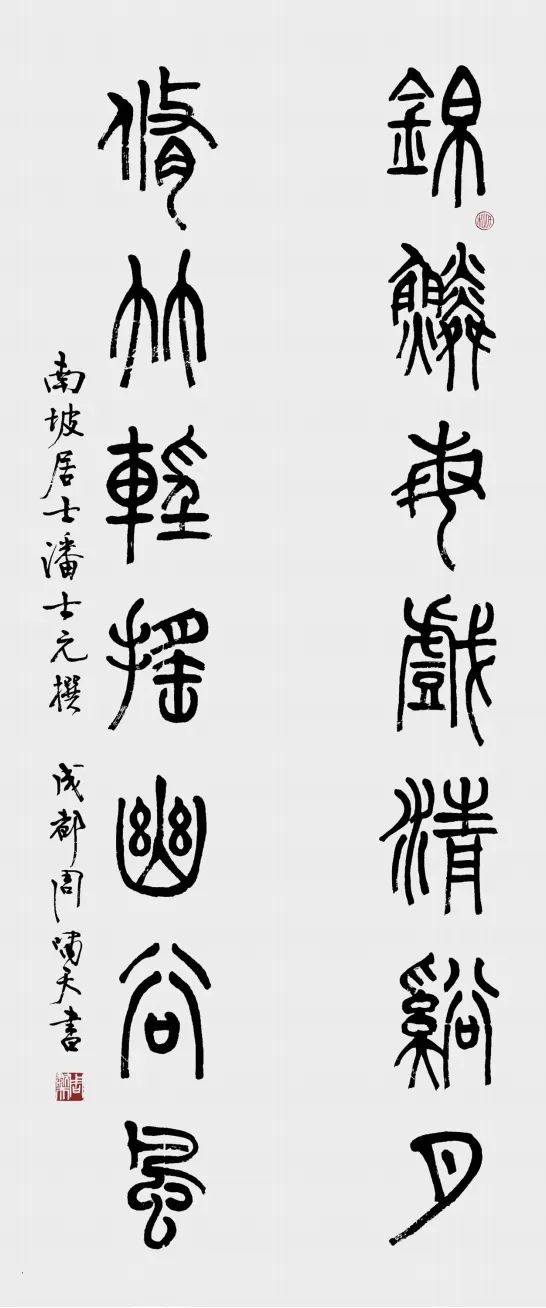 錦鱗每戲清谿月
脩竹輕搖幽谷風
南坡居士潘士元撰 成都周嘯天書